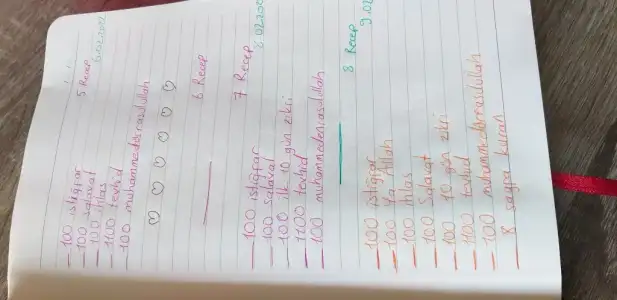 5 Recep
6.02.2022
- 100 istiğfar
- 100 salavat
- 100 ihlas
- 1100 tevhid
- 100 muhammedenrasdullah
6 Recep
7 Recep
8.02.202
- 100 istiğfar
- 100 Salavat
- 100 ilk 10 gün zikri
- 1100 tevhid
- 100 muhammedenrasdullah
8 Recep
9.02
- 100 istiğfar
- 100 Ya Allah
- 100 ihlas
- 100 Salavat
- 100 10 gün zikri
- 1100 tevhid
- 100 muhammedenrasdullah
8 sayfa kuran